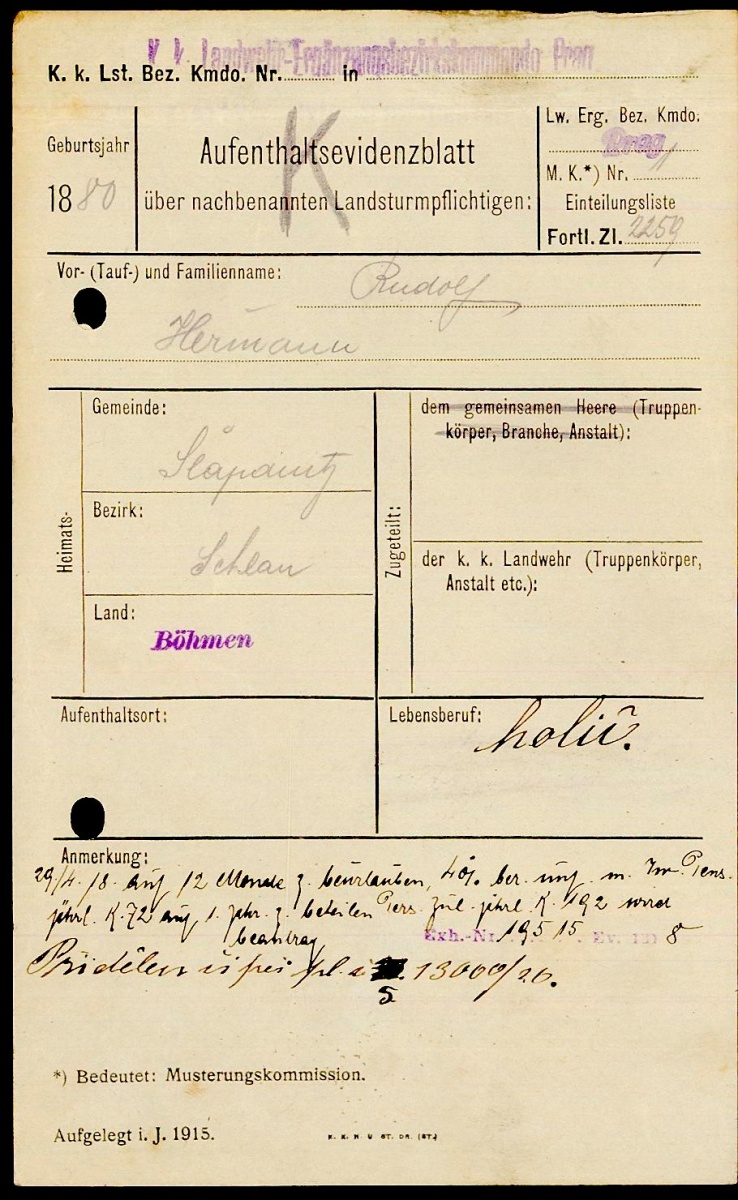 K. k. Landwehr-Ergänzungsbezirkskommando Prag
K. k. Lst. Bez. Kmdo. Nr. in
Geburtsjahr
1880
K
Aufenthaltsevidenzblatt
über nachbenannten Landsturmpflichtigen:
Lw. Erg. Bez. Kmdo.
Prag
M. K.*) Nr.
Einteilungsliste
Fortl. Zl. 2259
Vor- (Tauf-) und Familienname: Rudolf
Hermann
Heimats-
Gemeinde:
Bezirk:
Schlan
Land:
Böhmen
Zugeteilt:
dem gemeinsamen Heere (Truppen-
körper, Branche, Anstalt):
der k. k. Landwehr (Truppenkörper,
Anstalt etc.):
Aufenthaltsort:
Lebensberuf:
holič.
Anmerkung:
29/4. 18. auf 12 Monate z. beurlauben, 40% ber. unf. m. Inv. Pens.
jährl. K. 72 auf 1. Jhr. z. beteilen Pers. Zul. jährl. K. 192 wird
beantragt Exh.-Nr. 19515 Ev. 1918
Přidělen 13000/20.
5
*) Bedeutet: Musterungskommission.
Aufgelegt i. J. 1915.
K. K. H. U. ST. DR. (ST.)